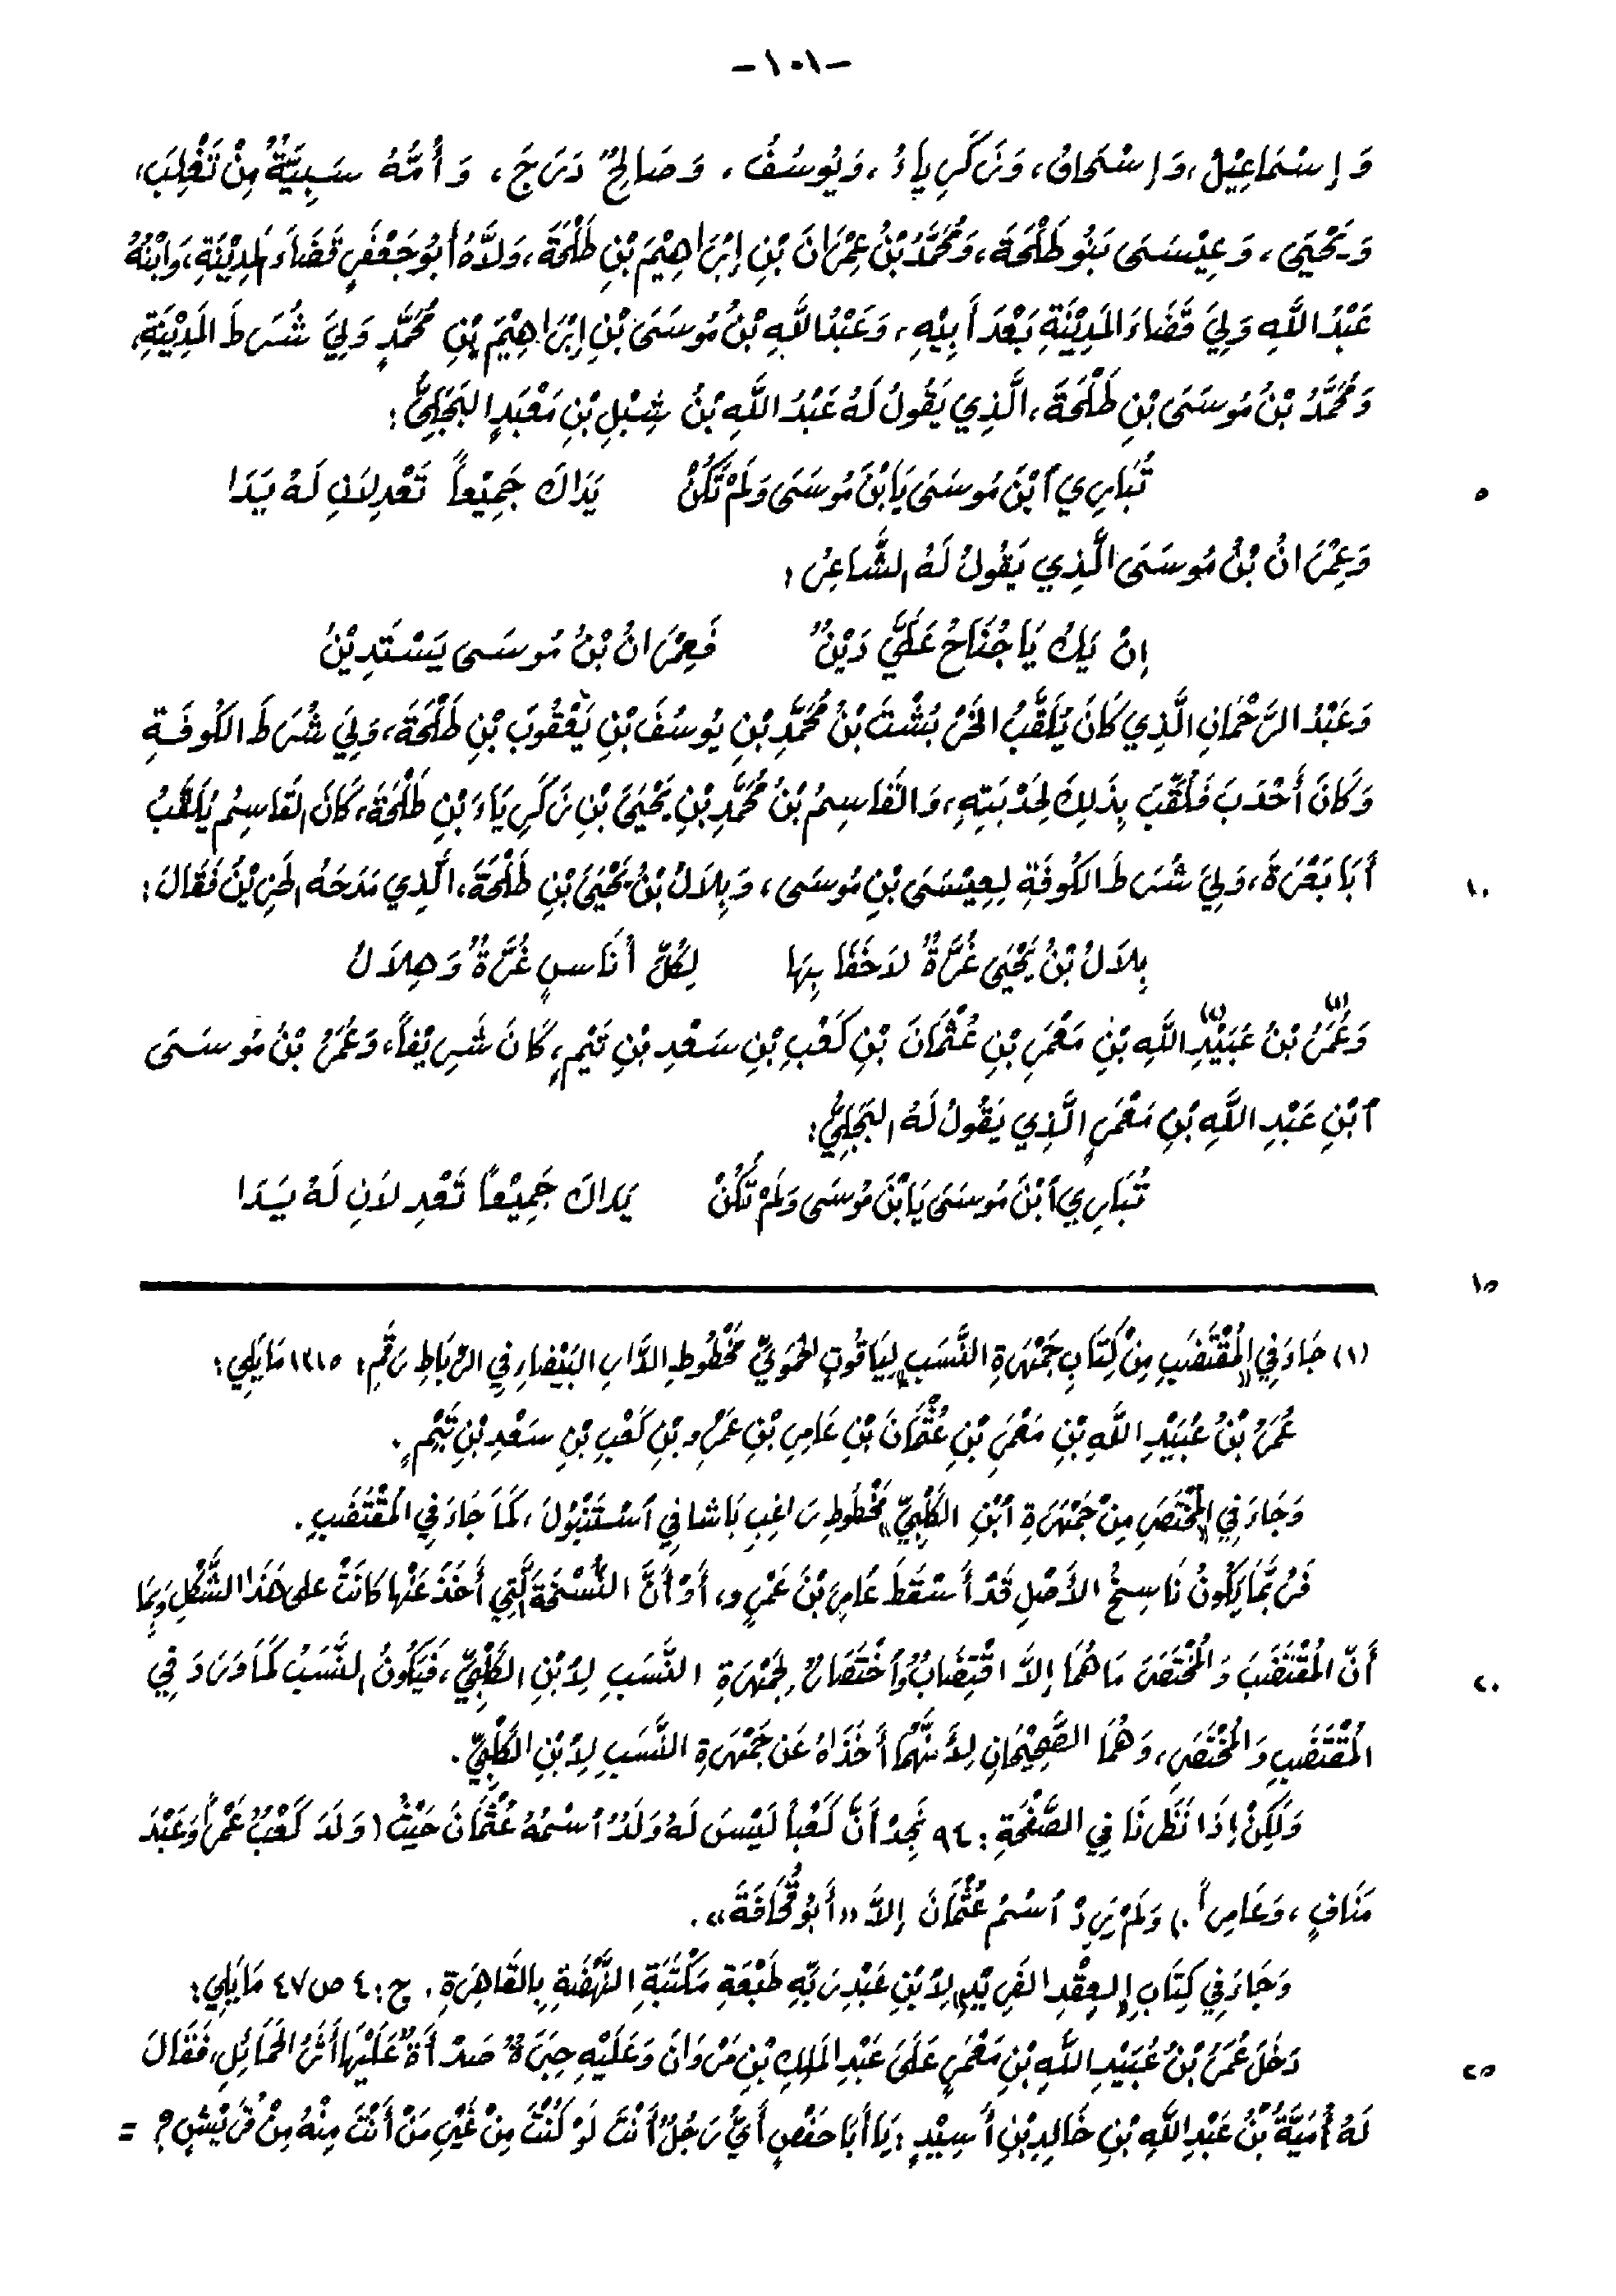 -١٠١-
وَإِسْمَاعِيْلُ، وَإِسْحَاقُ، وَزَكَرِيَاءُ، وَيُوسُفُ، وَصَالِحٌ دَرَجَ، وَأُمُّهُ سَبِيَّةٌ مِنْ تَغْلِبَ،
وَيَحْيَى، وَعِيْسَى بَنُو طَلْحَةَ، وَمُحَمَّدُ بْنُ عِمْرَانَ بْنِ إِبْرَاهِيْمَ بْنِ طَلْحَةَ، وَلاَّهُ أَبُو جَعْفَرٍ قَضَاءَ المَدِيْنَةِ، وَابْنُهُ
عَبْدُ اللَّهِ وَلِيَ قَضَاءَ المَدِيْنَةِ بَعْدَ أَبِيْهِ، وَعَبْدُ اللَّهِ بْنُ مُوسَى بْنِ إِبْرَاهِيْمَ بْنِ مُحَمَّدٍ وَلِيَ شُرَطَ المَدِيْنَةِ،
وَمُحَمَّدُ بْنُ مُوسَى بْنِ طَلْحَةَ، الَّذِي يَقُولُ لَهُ عَبْدُ اللَّهِ بْنُ شِبْلِ بْنِ مَعْبَدٍ البَجَلِيُّ:
تُبَارِي ٱبْنَ مُوسَى يَا بْنَ مُوسَى وَلَمْ تَكُنْ يَدَاكَ جَمِيْعاً تَعْدِلاَنِ لَهُ يَدَا
٥
وَعِمْرَانُ بْنُ مُوسَى الَّذِي يَقُولُ لَهُ الشَّاعِرُ:
إِنْ يَكُ يَا جُنَاحُ عَلَيَّ دَيْنٌ فَعِمْرَانُ بْنُ مُوسَى يَسْتَدِيْنُ
وَعَبْدُ الرَّحْمَانِ الَّذِي كَانَ يُلَقَّبُ الخَرْ بُشْتَ بْنُ مُحَمَّدِ بْنِ يُوسُفَ بْنِ يَعْقُوبَ بْنِ طَلْحَةَ، وَلِيَ شُرَطَ الكُوفَةِ
وَكَانَ أَحْدَبَ فَلُقِّبَ بِذَلِكَ لِحَدْبَتِهِ، وَالقَاسِمُ بْنُ مُحَمَّدِ بْنِ يَحْيَى بْنِ زَكَرِيَاءَ بْنِ طَلْحَةَ، كَانَ القَاسِمُ يُلَقَّبُ
أَبَا بَعْرَةَ، وَلِيَ شُرَطَ الكُوفَةِ لِعِيْسَى بْنِ مُوسَى، وَبِلاَلُ بْنُ يَحْيَى بْنِ طَلْحَةَ، الَّذِي مَدَحَهُ الحَزِيْنُ فَقَالَ:
١٠
بِلاَلُ بْنُ يَحْيَى غُرَّةٌ لاَ خَفَا بِهَا لِكُلِّ أُنَاسٍ غُرَّةٌ وَهِلاَلُ
وَعُمَرُ (١) بْنُ عُبَيْدِ (٢) اللَّهِ بْنِ مَعْمَرِ بْنِ عُثْمَانَ بْنِ كَعْبِ بْنِ سَعْدِ بْنِ تَيْمٍ، كَانَ شَرِيْفاً، وَعُمَرُ بْنُ مُوسَى
ٱبْنِ عَبْدِ اللَّهِ بْنِ مَعْمَرٍ الَّذِي يَقُولُ لَهُ البَجَلِيُّ:
تُبَارِي ٱبْنَ مُوسَى يَا بْنَ مُوسَى وَلَمْ تَكُنْ يَدَاكَ جَمِيْعاً تَعْدِلاَنِ لَهُ يَدَا
١٥
(١) جَاءَ فِي «المُقْتَضَبِ مِنْ كِتَابِ جَمْهَرَةِ النَّسَبِ» لِيَاقُوتٍ الحَمَوِيِّ مَخْطُوطِ الدَّارِ البَيْضَاءِ فِي الرِّبَاطِ رَقْمِ: ١٣١٥ مَا يَلِي:
عُمَرُ بْنُ عُبَيْدِ اللَّهِ بْنِ مَعْمَرِ بْنِ عُثْمَانَ بْنِ عَامِرِ بْنِ عَمْرِو بْنِ كَعْبِ بْنِ سَعْدِ بْنِ تَيْمٍ.
وَجَاءَ فِي «المُخْتَصَرِ مِنْ جَمْهَرَةِ ٱبْنِ الكَلْبِيِّ» مَخْطُوطِ رَاغِبِ بَاشَا فِي ٱسْتَنْبُولَ، كَمَا جَاءَ فِي المُقْتَضَبِ.
فَرُبَّمَا يَكُونُ نَاسِخُ الأَصْلِ قَدْ أَسْقَطَ عَامِرَ بْنَ عَمْرٍو، أَوْ أَنَّ النُّسْخَةَ الَّتِي أَخَذَ عَنْهَا كَانَتْ عَلى هَذَا الشَّكْلِ وَبِمَا
أَنَّ المُقْتَضَبَ وَالمُخْتَصَرَ مَا هُمَا إِلاَّ اقْتِضَابٌ وَٱخْتِصَارٌ لِجَمْهَرَةِ النَّسَبِ لِٱبْنِ الكَلْبِيِّ، فَيَكُونُ النَّسَبُ كَمَا وَرَدَ فِي
٢٠
المُقْتَضَبِ وَالمُخْتَصَرِ، وَهُمَا الصَّحِيْحَانِ لِأَنَّهُمَا أَخَذَاهُ عَنْ جَمْهَرَةِ النَّسَبِ لِٱبْنِ الكَلْبِيِّ.
وَلَكِنْ إِذَا نَظَرْنَا فِي الصَّفْحَةِ: ٩٤ نَجِدُ أَنَّ كَعْباً لَيْسَ لَهُ وَلَدٌ ٱسْمُهُ عُثْمَانَ حَيْثُ (وَلَدَ كَعْبٌ عَمْراً وَعَبْدَ
مَنَافٍ، وَعَامِراً.) وَلَمْ يَرِدْ ٱسْمُ عُثْمَانَ إِلاَّ «أَبُو قُحَافَةَ».
وَجَاءَ فِي كِتَابِ «العِقْدِ الفَرِيْدِ» لِٱبْنِ عَبْدِ رَبِّهِ طَبْعَةِ مَكْتَبَةِ النَّهْضَةِ بِالقَاهِرَةِ. ج: ٤ ص ٤٧ مَا يَلِي:
دَخَلَ عُمَرُ بْنُ عُبَيْدِ اللَّهِ بْنِ مَعْمَرٍ عَلَى عَبْدِ المَلِكِ بْنِ مَرْوَانَ وَعَلَيْهِ حِبَرَةٌ صَدْأَةٌ عَلَيْهَا أَثَرُ الحَمَائِلِ، فَقَالَ
٢٥
لَهُ أُمَيَّةُ بْنُ عَبْدِ اللَّهِ بْنِ خَالِدِ بْنِ أُسِيْدٍ: يَا أَبَا حَفْصٍ أَيُّ رَجُلٍ أَنْتَ لَوْ كُنْتَ مِنْ غَيْرِ مَنْ أَنْتَ مِنْهُ مِنْ قُرَيْشٍ؟ =